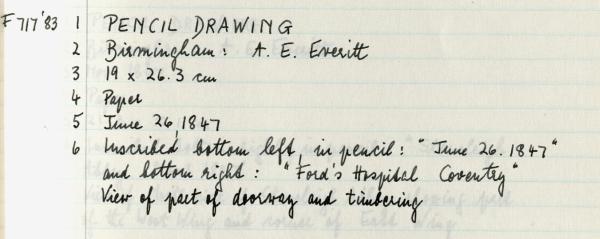 F717'83 1 PENCIL DRAWING
2 Birmingham: A. E. Everitt
3 19 x 26.3 cm
4 Paper
5 June 26, 1847
6 Inscribed bottom left, in pencil: "June 26. 1847"
and bottom right: "Ford's Hospital Coventry"
View of part of doorway and timbering